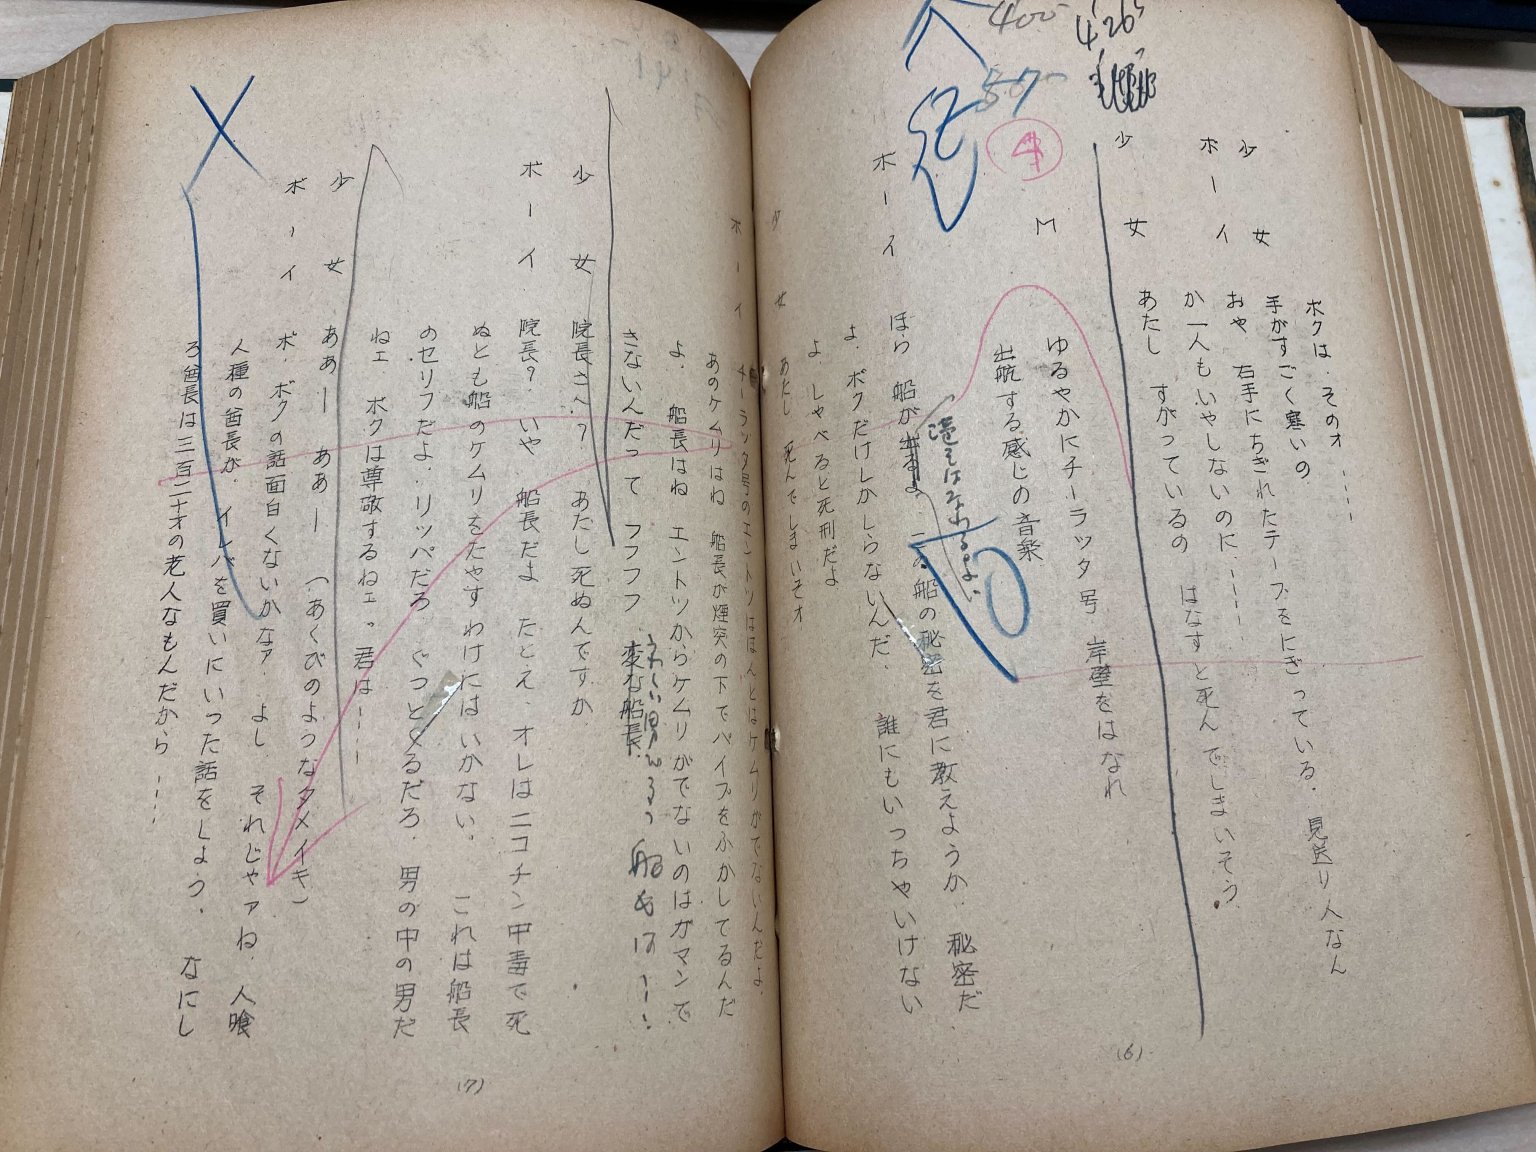 400
426
507
4
ボクは、そのオ・・・・
少女 手がすごく寒いの
ボーイ おや 右手にちぎれたテープをにぎっている. 見送り人なん
か一人もいやしないのに・・・・
少女 あたし すがっているの はなすと死んでしまいそう.
M ゆるやかにチーラッタ号 岸壁をはなれ
出航する感じの音楽
ボーイ ほら 船が出るよ. この船の秘密を君に教えようか. 秘密だ
よ. ボクだけしかしらないんだ. 誰にもいっちゃいけない
よ. しゃべると死刑だよ
少女 あたし 死んでしまいそオ
(6)
ボーイ チーラッタ号のエントツはほんとはケムリがでないんだよ.
あのケムリはね 船長が煙突の下でパイプをふかしてるんだ
よ. 船長はね エントツからケムリがでないのはガマンで
きないんだって フフフフ 変な船長.
少女 院長さん? あたし死ぬんですか.
ボーイ 院長? いや 船長だよ たとえ、オレはニコチン中毒で死
ぬとも船のケムリをたやすわけにはいかない. これは船長
のセリフだよ. リッパだろ ぐっとくるだろ. 男の中の男だ
ねェ ボクは尊敬するねェっ 君は・・・・
少女 ああー ああー (あくびのようなタメイキ)
ボーイ ボ、ボクの話面白くないかなァ. よし それじゃァね. 人喰
人種の酋長が、イレバを買いにいった話をしよう. なにし
ろ酋長は三百二十才の老人なもんだから・・・・
(7)